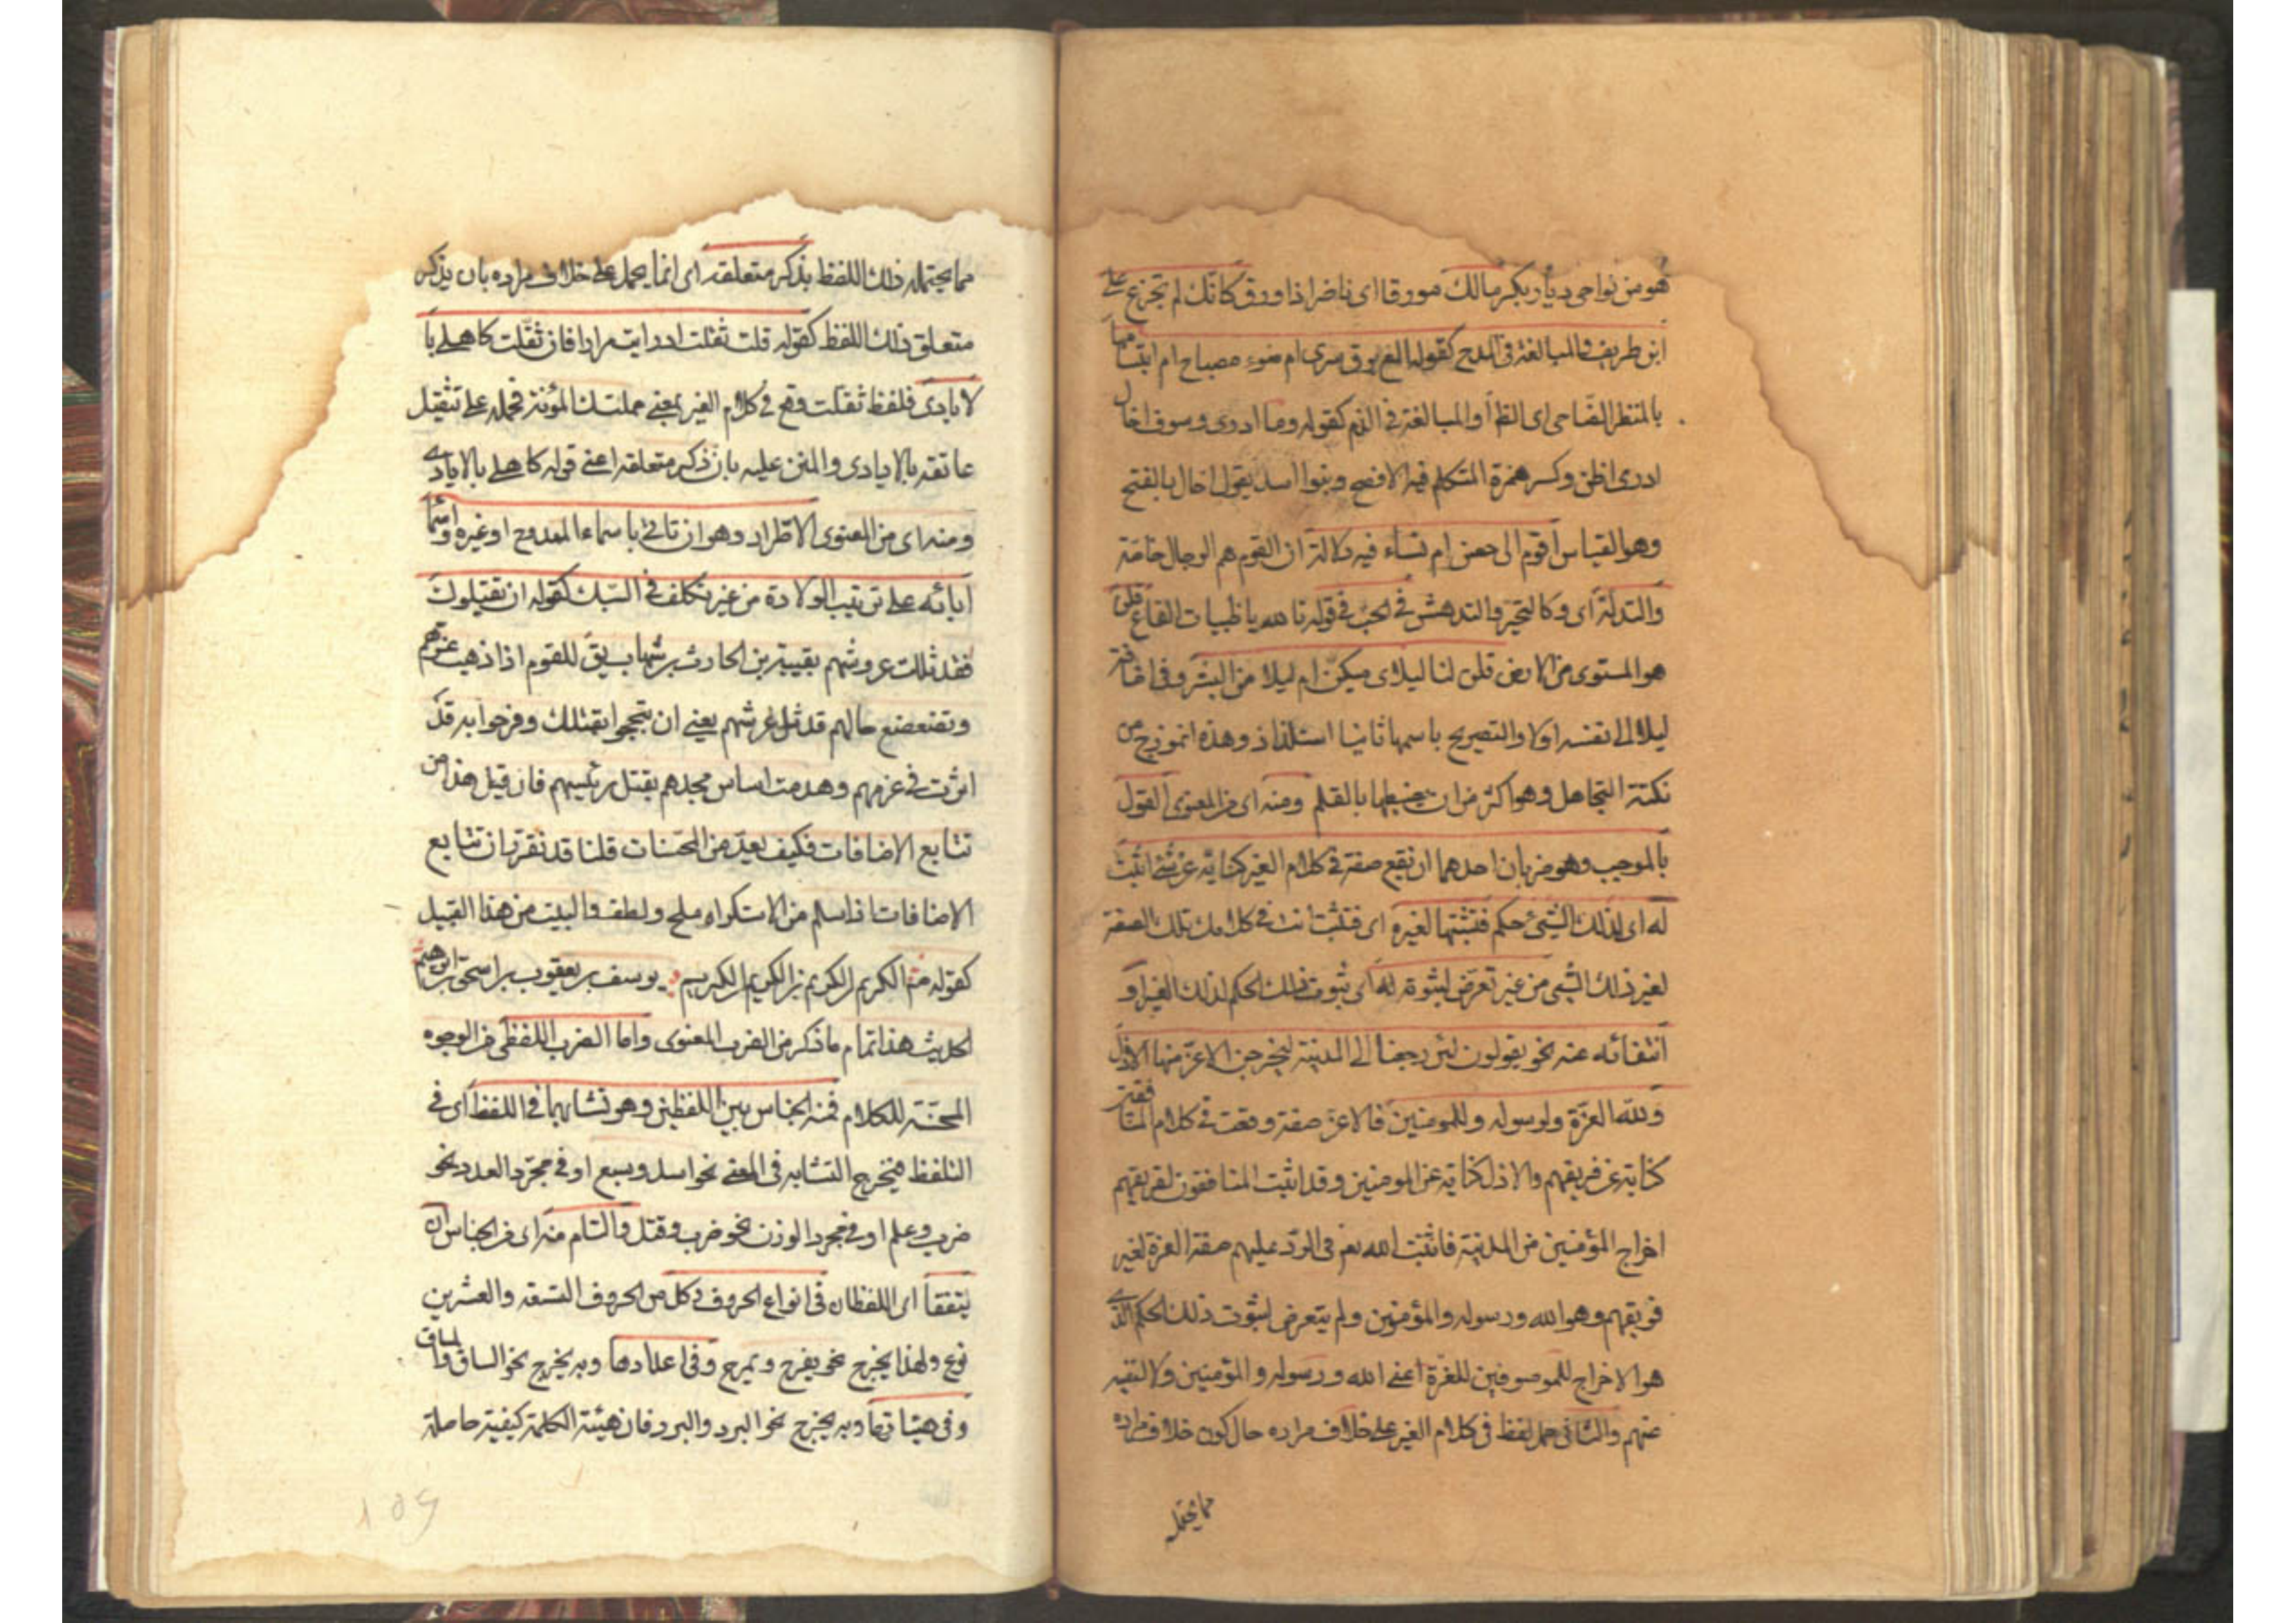 هو من نواحى ديار بكر مالك مورقا اى ناضرا ذا ورق كانك لم تجزع على
ابن طريف والمبالغة فى المدح كقوله المع برق سرى ام ضوء مصباح ام ابتسامتها
بالمنظر الضاحى اى الظاهر والمبالغة فى الذم كقوله وما ادرى وسوف اخال
ادرى اظن وكسر همزة المتكلم فيه الافصح وبنوا اسد يقول اخال بالفتح
وهو القياس اقوم ال حصن ام نساء فيه دلالة ان القوم هم الرجال خاصة
والتدله اى وكالتحير والتدهش فى الحب فى قوله تالله يا ظبيات القاع قلن
هو المستوى من الارض قلن لنا ليلاى منكن ام ليلا من البشر وفى اضافة
ليلا الى نفسه اولا والتصريح باسمها ثانيا استلذاذ وهذه انموذج من
نكتة التجاهل وهو اكثر من ان يضبطها بالقلم ومنه اى من المعنوى القول
بالموجب وهو ضربان احدهما ان تقع صفة فى كلام الغير كناية عن شئ اثبت
له اى لذلك الشئ حكم فتثبتها لغيره اى فتثبت انت فى كلامك تلك الصفة
لغير ذلك الشئ من غير تعرض لثبوته له اى ثبوت ذلك الحكم لذلك الغير او
انتفائه عنه نحو يقولون لئن رجعنا الى المدينة ليخرجن الاعز منها الاذل
ولله العزة ولرسوله وللمومنين فالاعز صفة وقعت فى كلام المنافقين
كناية عن فريقهم والاذل كناية عن المومنين وقد اثبت المنافقون لفريقهم
اخراج المؤمنين من المدينة فاثبت الله تعم فى الرد عليهم صفة العزة لغير
فريقهم وهو الله ورسوله والمؤمنين ولم يتعرض لثبوت ذلك الحكم الذى
هو الاخراج للموصوفين للعزة اعنى الله ورسوله والمؤمنين ولا لنفيه
عنهم والثانى حمل لفظ فى كلام الغير على خلاف مراده حال كون خلاف مراده
مما يحتمله
مما يحتمله ذلك اللفظ بذكر متعلقه اى انما يحمل على خلاف مراده بان يذكر
متعلق ذلك اللفظ كقوله قلت ثقلت اذ اتيت مرارا قال ثقلت كاهلى با
لايادى فلفظ ثقلت وقع فى كلام الغير بمعنى حملتك المؤنة فحمله على تثقيل
عاتقه بالايادى والمنن عليه بان ذكر متعلقه اعنى قوله كاهلى بالايادى
ومنه اى من المعنوى الاطراد وهو ان تاتى باسماء الممدوح او غيره واسماء
ابائه على ترتيب الولادة من غير تكلف فى السبك كقوله ان يقتلوك
فقد ثللت عروشهم بعتيبة بن الحارث بن شهاب يق للقوم اذا ذهب عزهم
وتضعضع حالهم قد ثل عرشهم يعنى ان تبجحوا بقتلك وفرحوا به فقد
اثرت فى عزهم وهدمت اساس مجدهم بقتل رئيسهم فان قيل هذا من
تتابع الاضافات فكيف يعد من المحسنات قلنا قد تقرر ان تتابع
الاضافات اذا سلم من الاستكراه ملح ولطف والبيت من هذا القبيل
كقوله عم الكريم ابن الكريم بن الكريم ابن الكريم يوسف بن يعقوب بن اسحق بن ابراهيم
الحديث هذا تمام ما ذكر من الضرب المعنوى واما الضرب اللفظى من الوجوه
المحسنة للكلام فمنه الجناس بين اللفظين وهو تشابههما فى اللفظ اى فى
التلفظ فيخرج التشابه فى المعنى نحو اسد وسبع او فى مجرد العدد نحو
ضرب وعلم او فى مجرد الوزن نحو ضرب وقتل والتام منه اى من الجناس ان
يتفقا اى اللفظان فى انواع الحروف فكل من الحروف التسعة والعشرين
نوع ولهذا يخرج نحو يفرح ويمرح وفى اعدادها وبه يخرج نحو الساق والمساق
وفى هيئاتها وبه يخرج نحو البرد والبرد فان هيئة الكلمة كيفية حاصلة